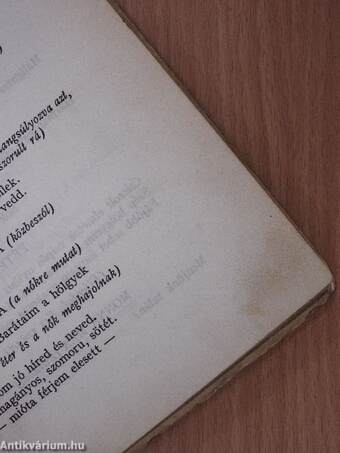 )
angsúlyozva azt,
szorult rá)
lek.
vedd.
A (közbeszól)
A (a nőkre mutat)
Barátaim a hölgyek
éter és a nők meghajolnak)
om jó híred és neved,
magányos, szomoru, sötét.
— mióta férjem elesett —
Antikvárium.hu